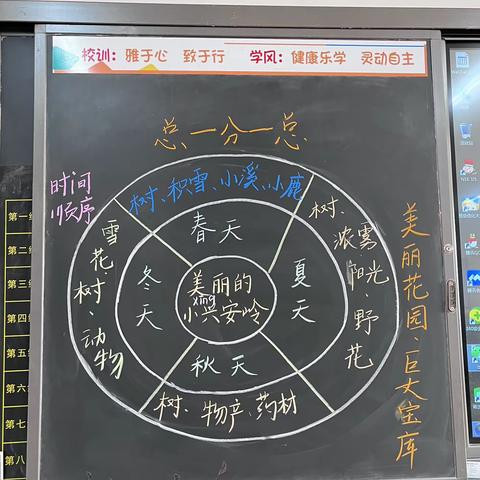 校训：雅于心 致于行 学风：健康乐学 灵动自主
总一分一总
时间
顺序
树、积雪、小溪、小鹿
春天
树、浓雾、阳光、野花
夏天
树、物产、药材
秋天
雪花、树、动物
冬天
美丽的
xīng
小兴安岭
美丽花园、巨大宝库
第一
第二
第三
第四
第五
第六
第七
第八